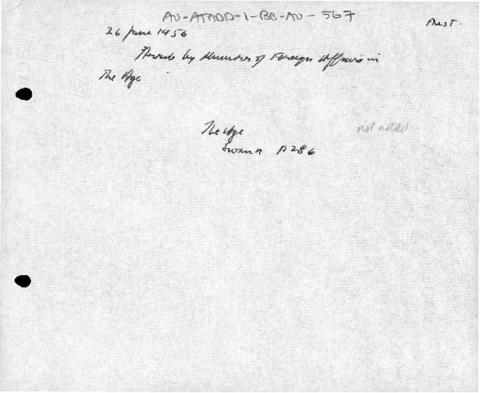 AU-ATADD-1-BB-AU-567
Aust.
26 June 1956
by Minister of Foreign Affairs in
The Age
The Age
not noted
P 286